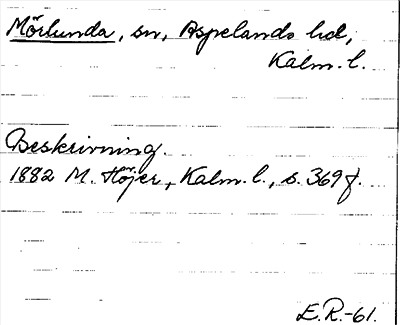 Mörlunda, sn, Aspelands hd,
Kalm. l.
Beskrivning.
1882 M. Höjer, Kalm. l., s. 369 f.
E.R.-61.